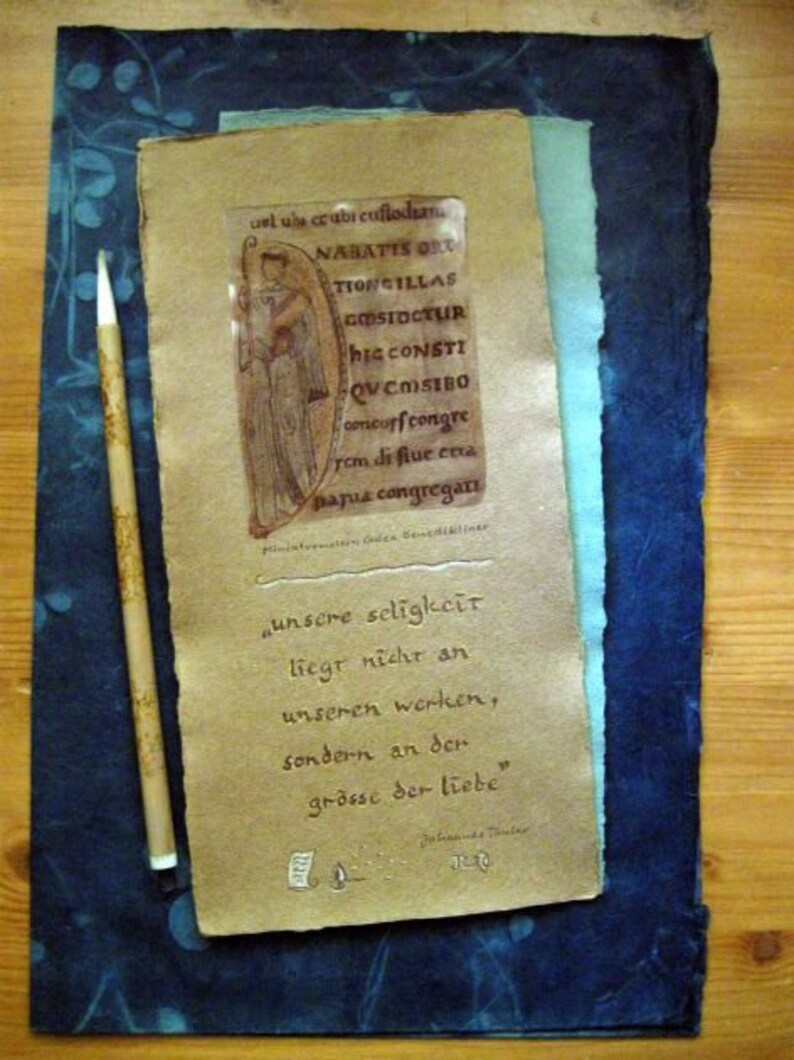 uel ubi et ubi custodiam
NABATIS ORA
TIONE ILLAS
hIC CONSTI
congre
rem di siue etia
parua congregati
Miniaturmalerei Codex Benediktiner
„unsere seligkeit
liegt nicht an
unseren werken,
sondern an der
grösse der liebe”
Johannes Tauler